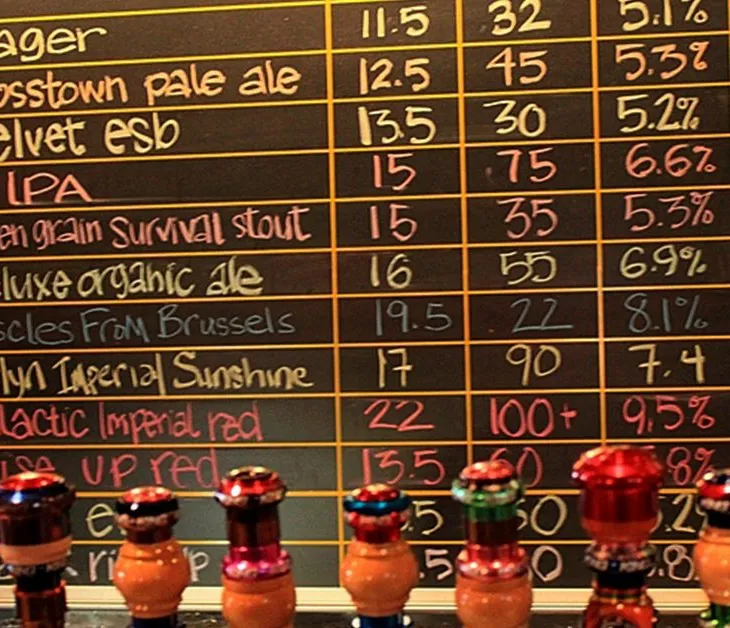 ager 11.5 32 5.1%
osstown pale ale 12.5 45 5.3%
elvet esb 13.5 30 5.2%
IPA 15 75 6.6%
en grain survival stout 15 35 5.3%
luxe organic ale 16 55 6.9%
scles From Brussels 19.5 22 8.1%
lyn Imperial Sunshine 17 90 7.4
lactic Imperial red 22 100+ 9.5%
ise up red 13.5 60 .8%
e .5 50 .2
r p .5 0 .8